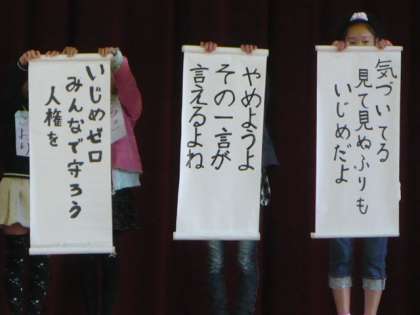 いじめゼロ
みんなで守ろう
人権を
やめようよ
その一言が
言えるよね
気づいてる
見て見ぬふりも
いじめだよ